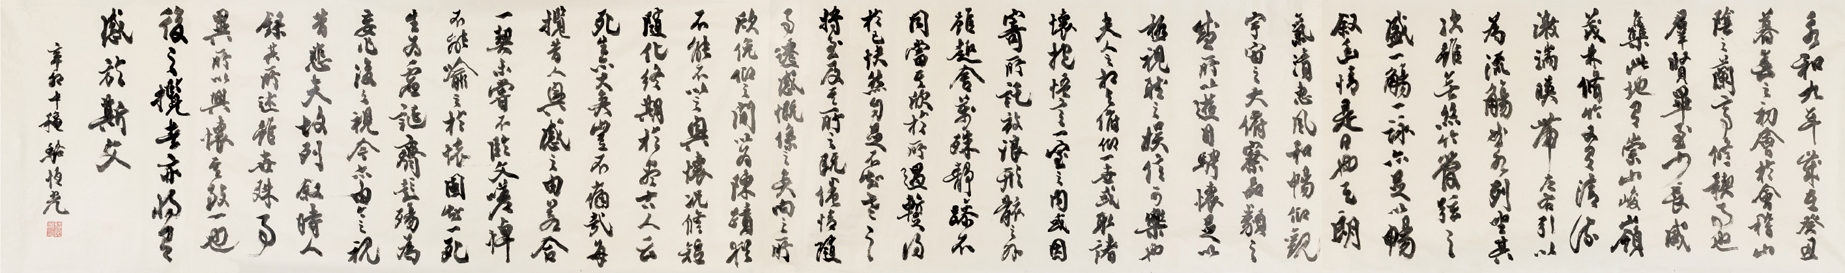 永和九年歲在癸丑
暮春之初會於會稽山
陰之蘭亭修禊事也
羣賢畢至少長咸
集此地有崇山峻嶺
茂林修竹又有清流
激湍映帶左右引以
為流觴曲水列坐其
次雖無絲竹管弦之
盛一觴一詠亦足以暢
敘幽情是日也天朗
氣清惠風和暢仰觀
宇宙之大俯察品類之
盛所以遊目騁懷足以
極視聽之娛信可樂也
夫人之相與俯仰一世或取諸
懷抱悟言一室之內或因
寄所託放浪形骸之外
雖趣舍萬殊靜躁不
同當其欣於所遇暫得
於己快然自足不知老之
將至及其所之既惓情隨
事遷感慨係之矣向之所
欣俛仰之間以為陳蹟猶
不能不以之興懷況修短
隨化終期於盡古人云
死生亦大矣豈不痛哉每
攬昔人興感之由若合
一契未嘗不臨文嗟悼
不能喻之於懷固知一死
生為虛誕齊彭殤為
妄作後之視今亦由今之視
昔悲夫故列敘時人
錄其所述雖世殊事
異所以興懷其致一也
後之攬者亦將有
感於斯文
辛卯